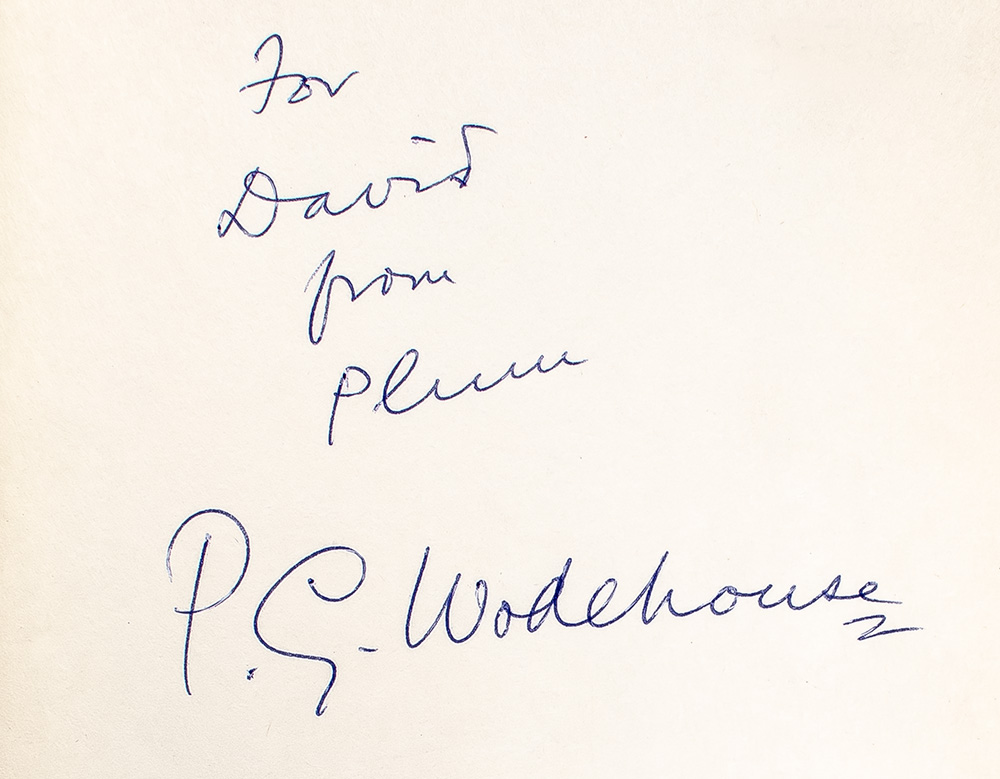 For
David
from
Plum
P. G. Wodehouse